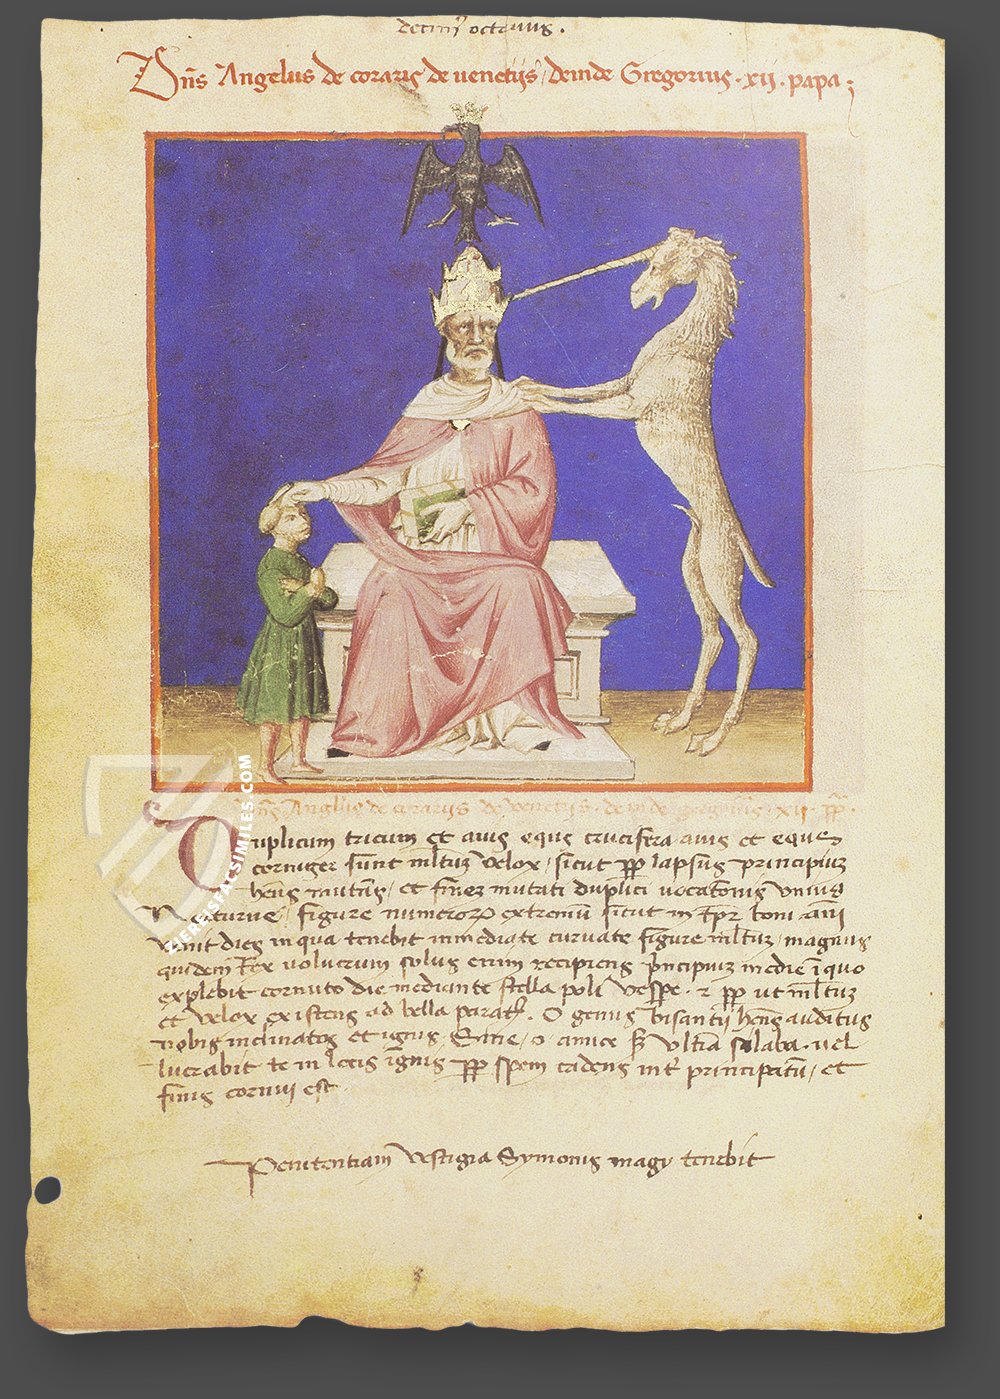 decim9 octauus.
Dns Angelus de coraris de uenetijs / deinde Gregorius . xij . papa ;
Dns Anglus de coraris de venetijs . deinde gregorius . xij . pp .
THEFACSIMILES.COM
Quplicum tricum et auis equs crucifera auis et eque
corniger sunt mltum velox / sicut lapsus principium
hens nautans / et finem mutati duplici uocationis unius
Nocturne / figure numerorum extremum sicut in boni
venit dies in qua tenebit inmediate curuate figure mltum / magnus
quidem rex uolucrum solus enim recipiens principium medie in quo
explebit cornuto die mediante stella poli vespe . ut mltum
et velox existens ad bella parat . O genus bisantij hens auditus
nobis inclinatos et ignis / O amice ultima silaba . uel
lucrabit te in locis ignis spem cadens int principatum / et
finis cornui est .
Penitentiam vestigia Symonis magy tenebit